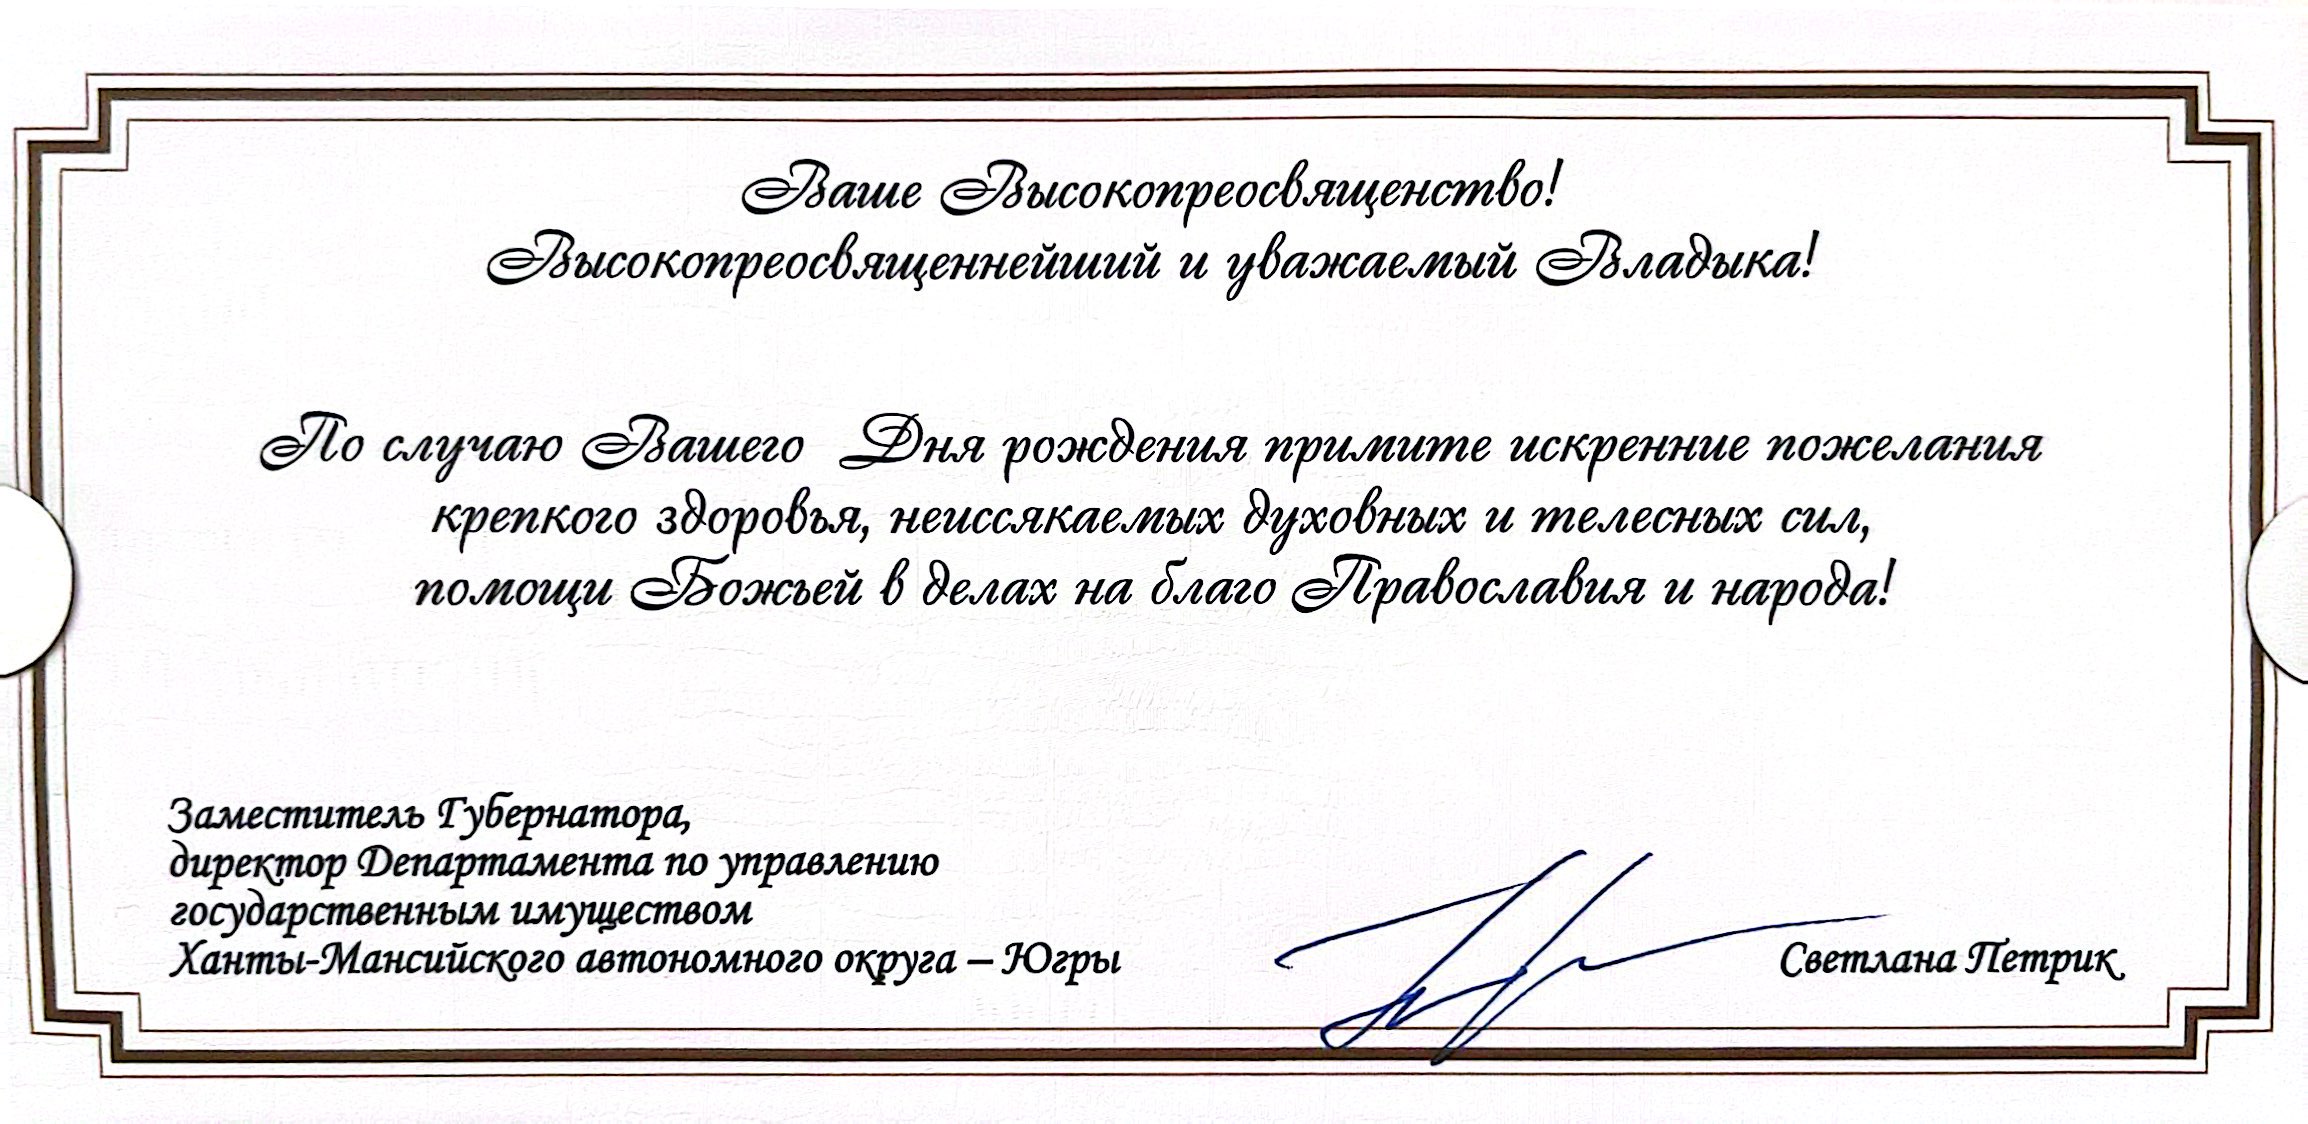 Ваше Высокопреосвященство!
Высокопреосвященнейший и уважаемый Владыка!
По случаю Вашего Дня рождения примите искренние пожелания
крепкого здоровья, неиссякаемых духовных и телесных сил,
помощи Божьей в делах на благо Православия и народа!
Заместитель Губернатора,
директор Департамента по управлению
государственным имуществом
Ханты-Мансийского автономного округа – Югры
Светлана Петрик